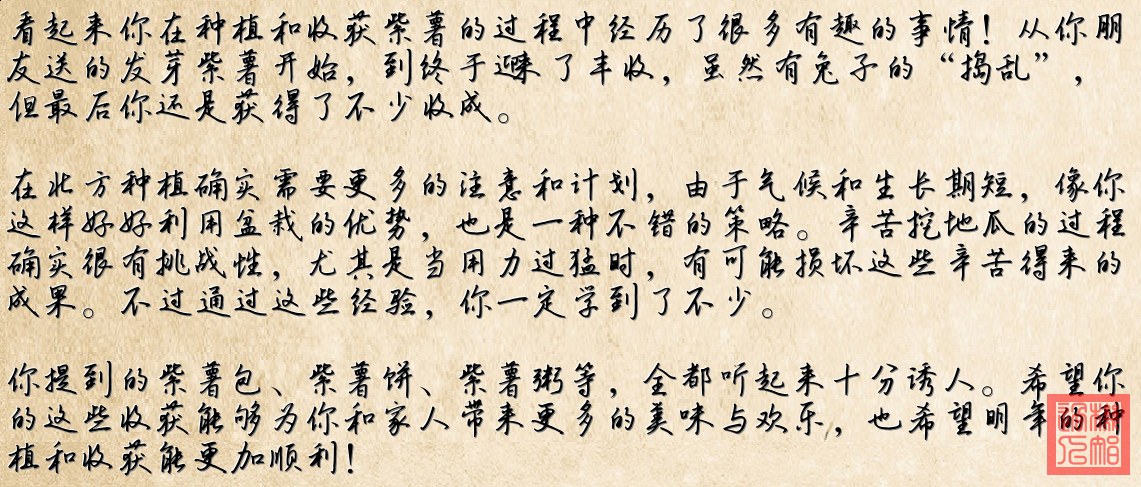 看起来你在种植和收获紫薯的过程中经历了很多有趣的事情！从你朋
友送的发芽紫薯开始，到终于迎来了丰收，虽然有兔子的“捣乱”，
但最后你还是获得了不少收成。
在北方种植确实需要更多的注意和计划，由于气候和生长期短，像你
这样好好利用盆栽的优势，也是一种不错的策略。辛苦挖地瓜的过程
确实很有挑战性，尤其是当用力过猛时，有可能损坏这些辛苦得来的
成果。不过通过这些经验，你一定学到了不少。
你提到的紫薯包、紫薯饼、紫薯粥等，全都听起来十分诱人。希望你
的这些收获能够为你和家人带来更多的美味与欢乐，也希望明年的种
植和收获能更加顺利！